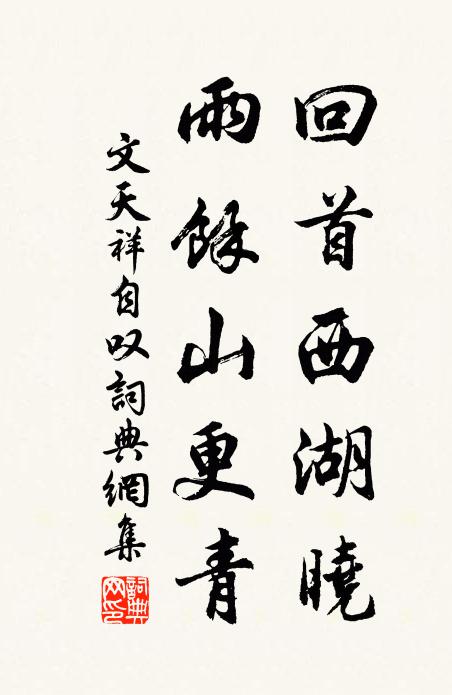 回首西湖曉
雨餘山更青
文天祥自叹詞典網集
詞典网印